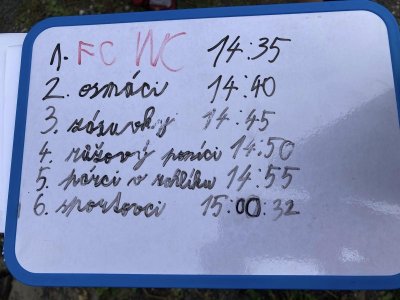 1. FC WC 14:35
2. osmáci 14:40
3. zásuvky 14:45
4. růžový poníci 14:50
5. párci v rohlíku 14:55
6. sportovci 15:00:32